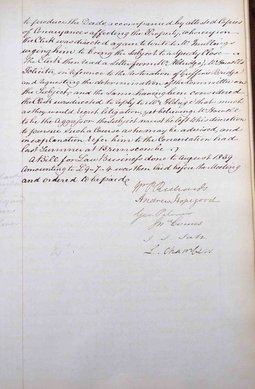 to produce the Deeds accompanied by attested Copies
of Conveyances affecting the Property, whereupon
The Clerk was directed again to write to Mr
urging him to bring the subject to a speedy Close
The Clerk then read a letter from Mr
Solicitor, in reference to the alteration of Bridge
and requesting the determination of the Committee on
the Subject, and the same having been considered
the Clerk was directed to reply to Mr that much
as they would regret litigation yet believing Mr
to be the Aggressor the subject must be left to his discretion
to pursue such a Course as he may be advised, and
in explanation refer him to the Conversation had
last Summer at Brimscombe
A Bill for Law Business done to August 1839
Amounting to £ 9. 7. 4 was then laid before the Meeting
and ordered to be paid
Andrew
L. Chambers